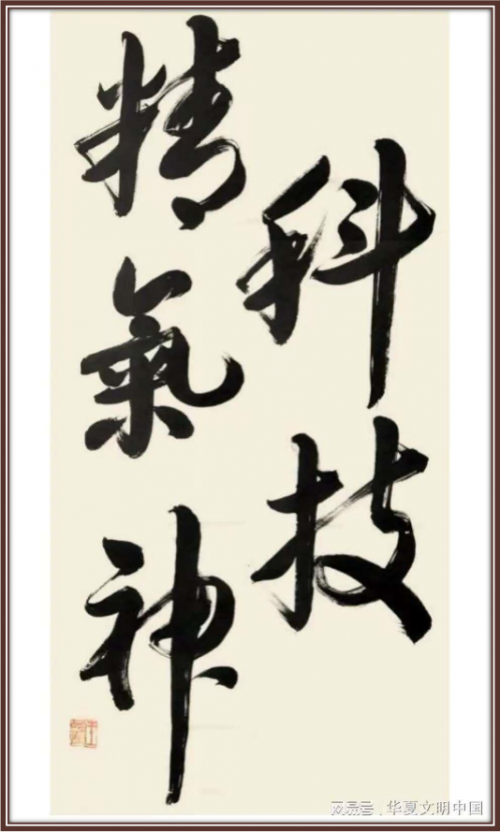 科技
精氣神
网易号 华夏文明中国